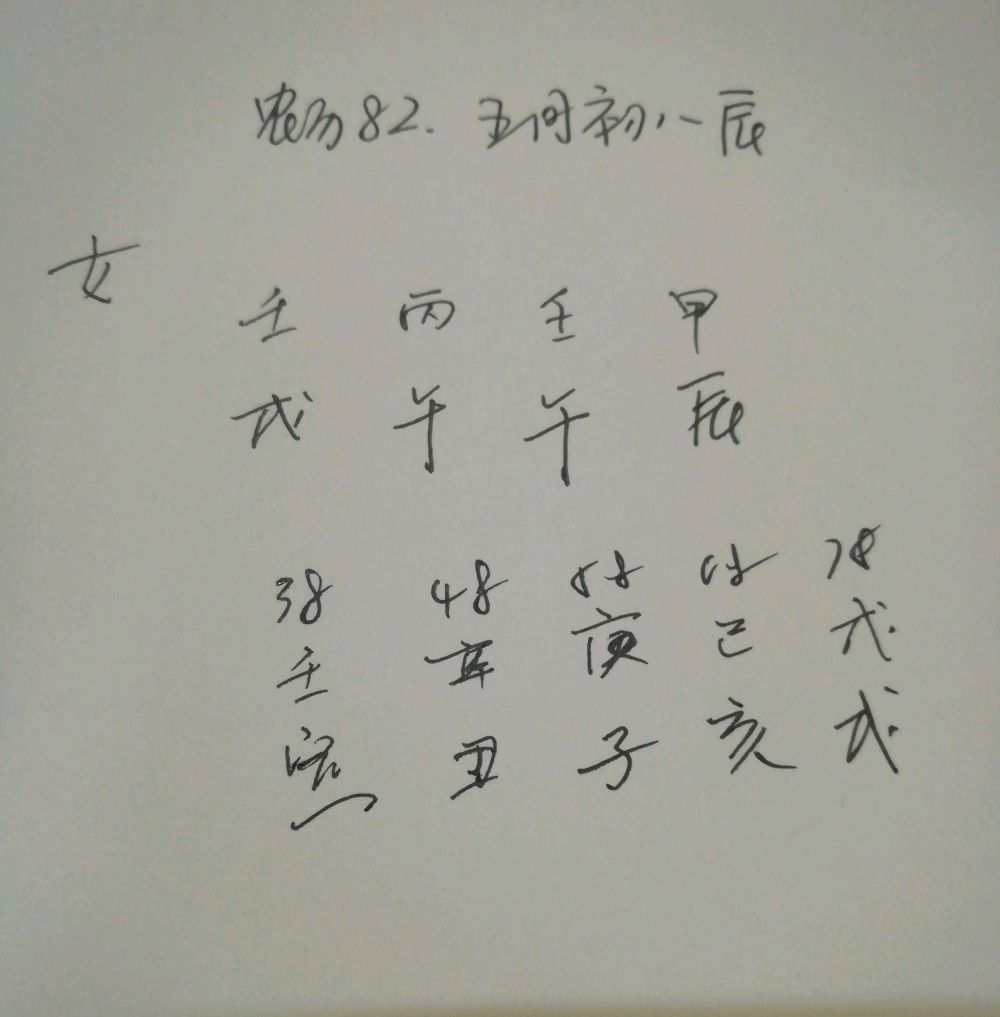 农历82.五月初八辰
女
壬 丙 壬 甲
戌 午 午 辰
38 48 58 68 78
壬 辛 庚 己 戊
寅 丑 子 亥 戌